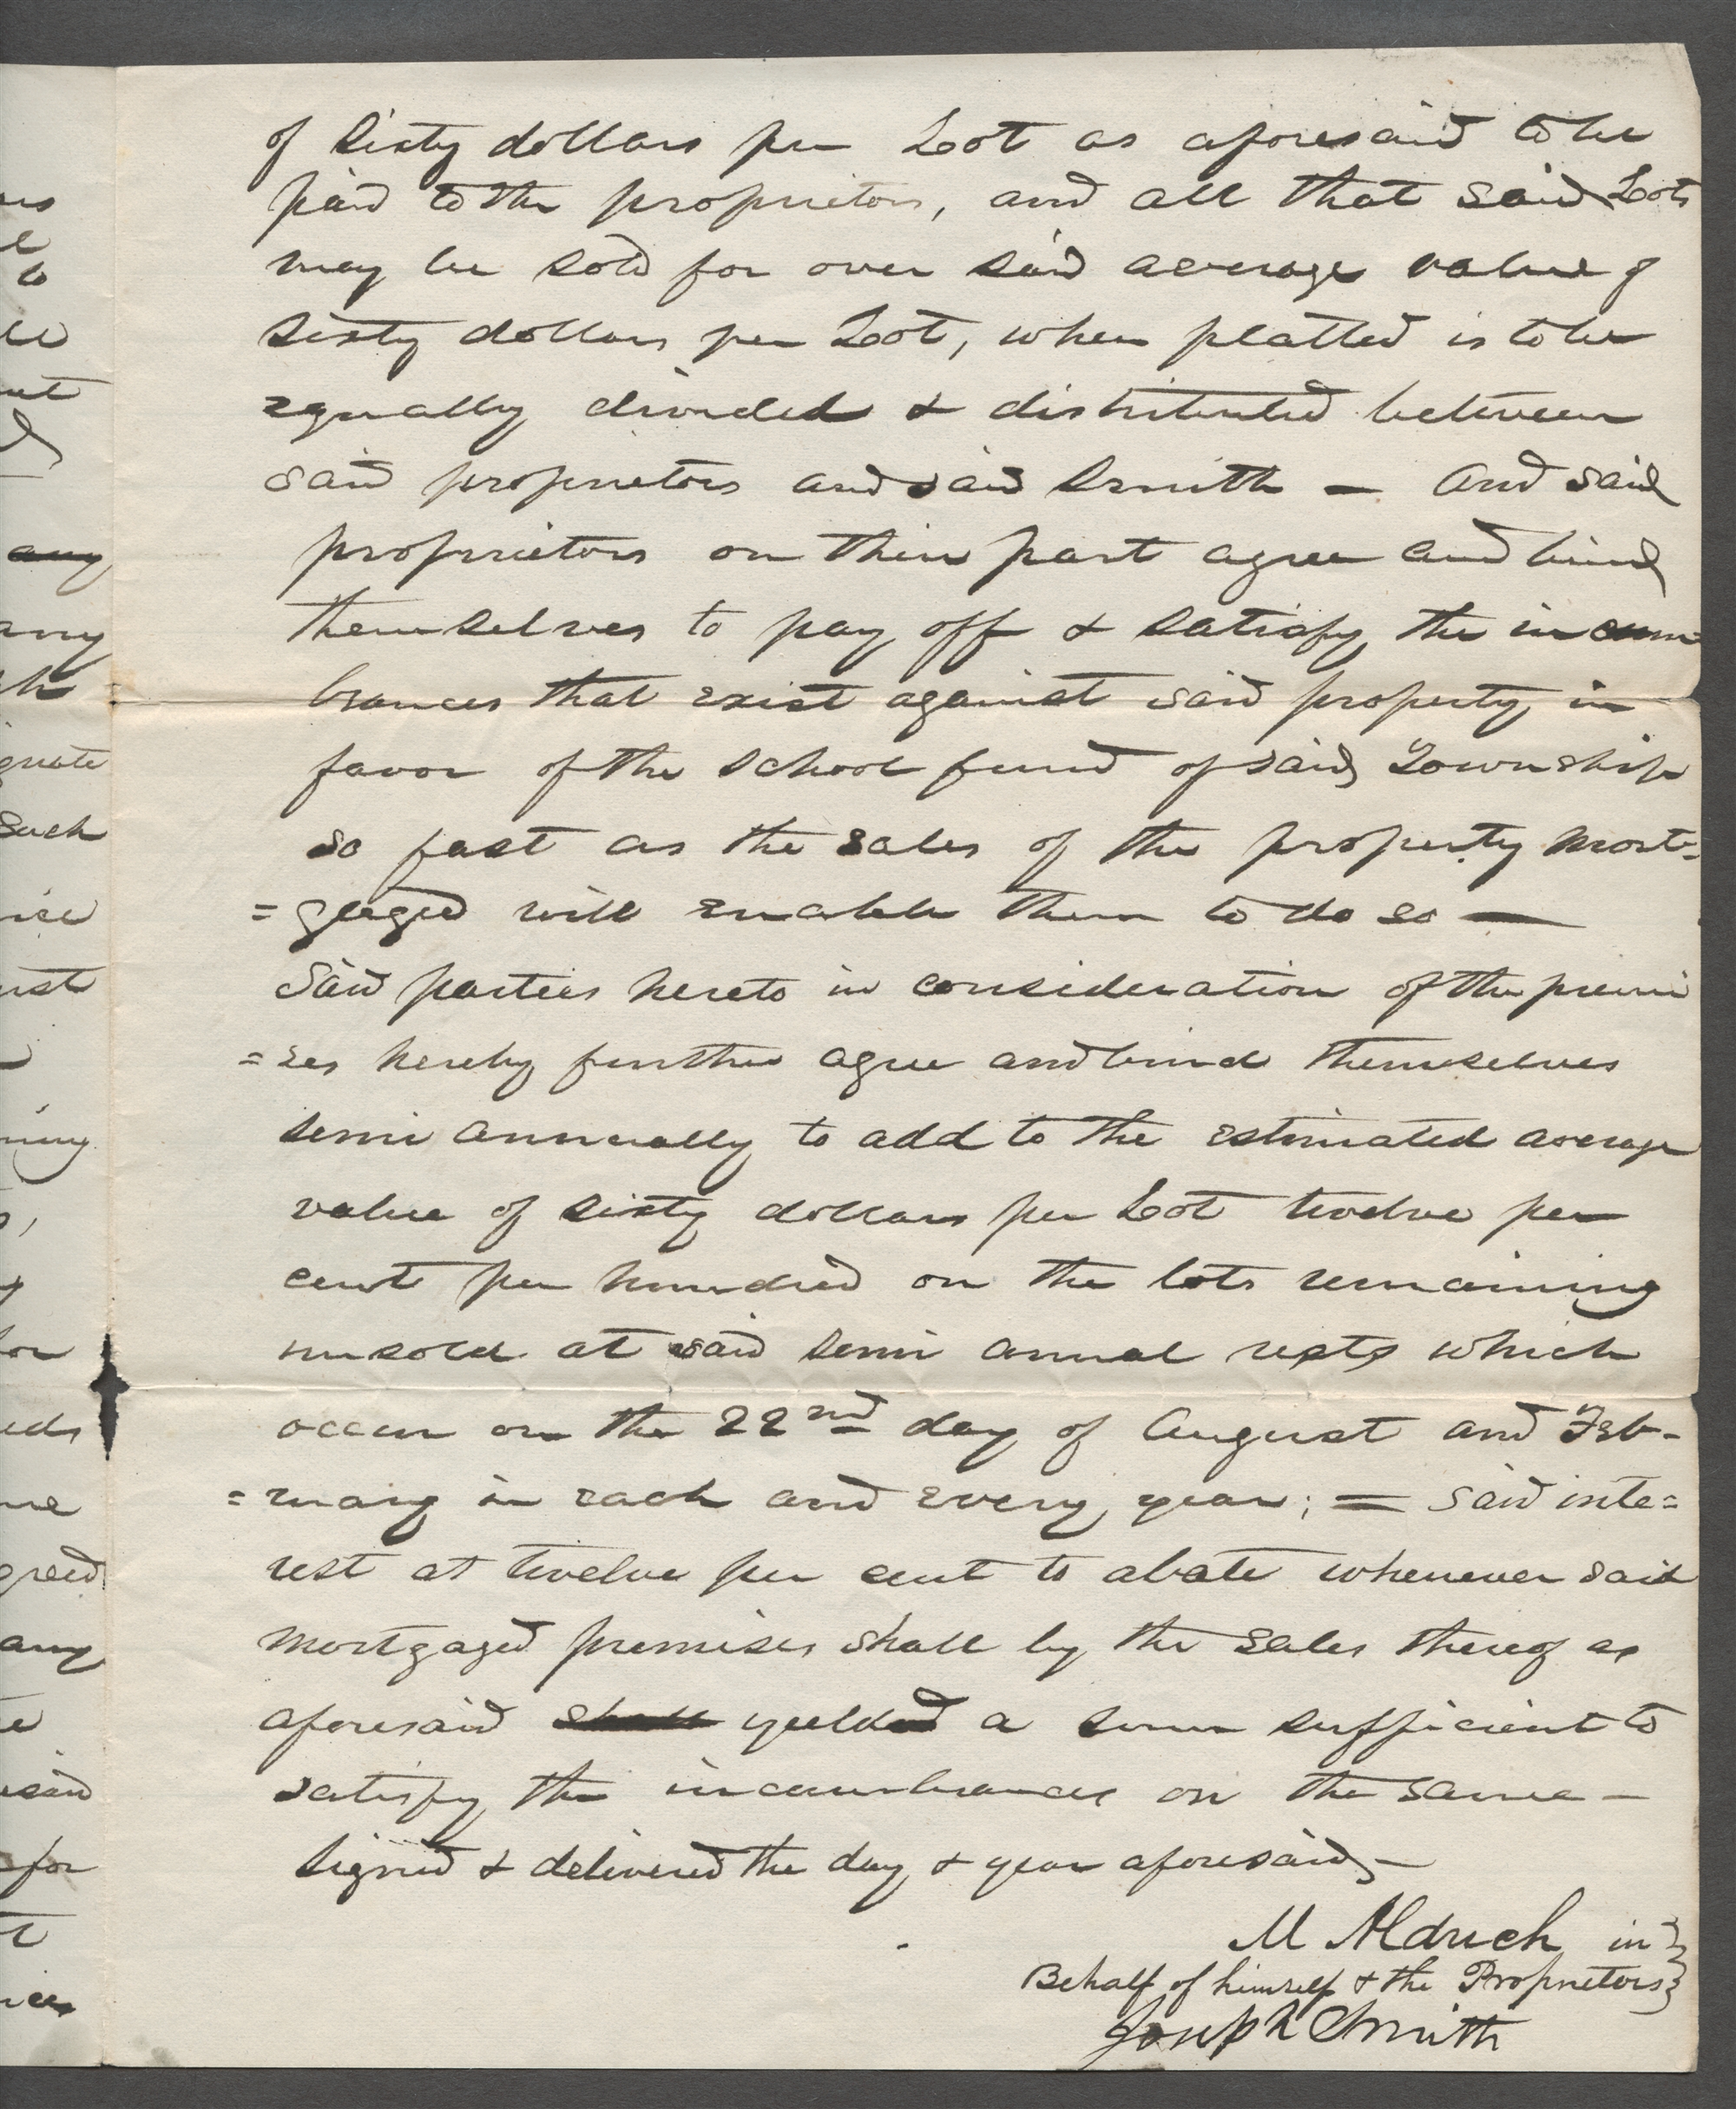 of sixty dollars per Lot as aforesaid to be
paid to the proprietors, and all that said Lots
may be sold for over said average value of
sixty dollars per Lot, when platted is to be
equally divided & distributed between
said proprietors and said Smith — And said
proprietors on their part agree and bind
themselves to pay off & satisfy the incum=
brances that exist against said property in
favor of the school fund of said Township
so fast as the sales of the property Mort=
=gaged will enable them to do so —
Said parties hereto in consideration of the premi
=ses hereby further agree and bind themselves
semi annually to add to the estimated average
value of sixty dollars per Lot twelve per
cent per hundred on the lots remaining
unsold at said semi annual rests which
occur on the 22nd day of August and Feb-
=ruary in each and every year; = said inte=
rest at twelve per cent to abate whenever said
Mortgaged premises shall by the sales thereof as
aforesaid shall yielded a sum sufficient to
satisfy the incumbrances on the same —
Signed & delivered the day & year aforesaid —
M Aldrich in
Behalf of himself & the Proprietors
Joseph Smith